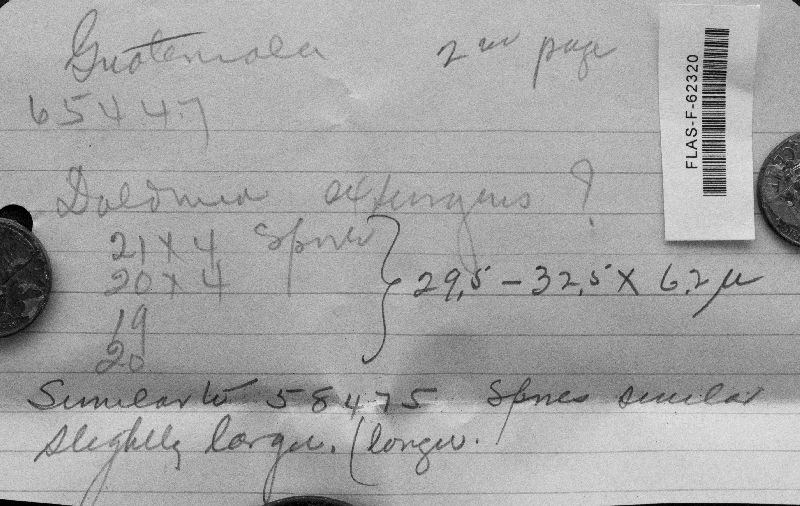 Guatemala 2nd page
65447
Daldinia extringens ?
21 x 4 Spores
20 x 4
29,5 - 32,5 x 6.2 µ
19
20
Similar to 58475 Spores similar
slightly larger. (longer.
FLAS-F-62320